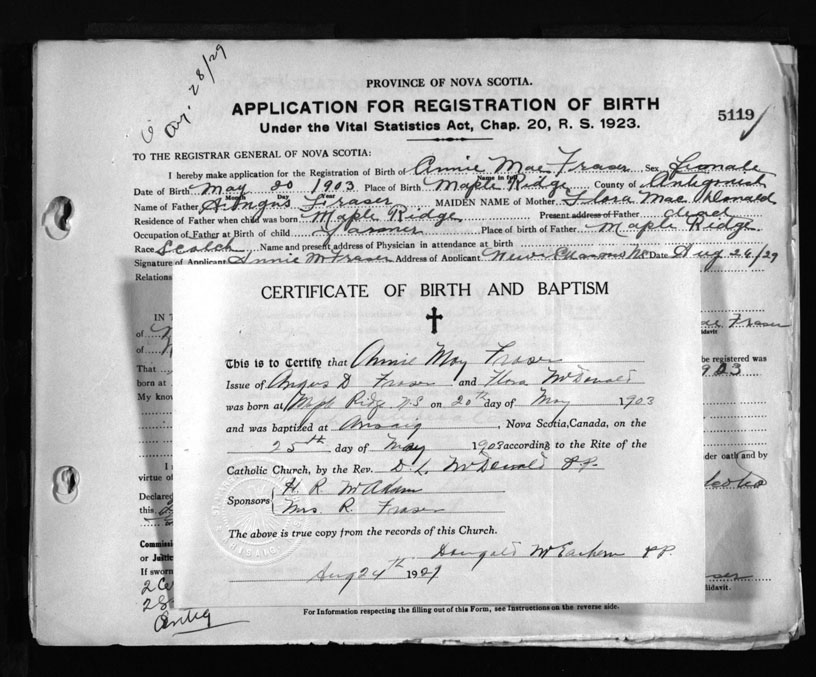 Aug. 28/29
PROVINCE OF NOVA SCOTIA.
APPLICATION FOR REGISTRATION OF BIRTH
5119
Under the Vital Statistics Act, Chap. 20, R. S. 1923.
TO THE REGISTRAR GENERAL OF NOVA SCOTIA:
I hereby make application for the Registration of Birth of Annie Mae Fraser Sex Female
Name in full
Date of Birth May 20 1903 Place of Birth Maple Ridge County of Antigonish
Month Day Year
Name of Father Angus Fraser MAIDEN NAME of Mother Flora Mac Donald
Residence of Father when child was born Maple Ridge Present address of Father dead
Occupation of Father at Birth of child Farmer Place of birth of Father Maple Ridge
Race Scotch Name and present address of Physician in attendance at birth
Signature of Applicant Annie M Fraser Address of Applicant Date Aug 26/29
Relations
CERTIFICATE OF BIRTH AND BAPTISM
This is to Certify that Annie May Fraser
Issue of Angus D Fraser and Flora McDonald
was born at Maple Ridge N.S on 20th day of May 1903
and was baptized at Arisaig, Nova Scotia, Canada, on the
25th day of May 1903 according to the Rite of the
Catholic Church, by the Rev. D. L. McDonald P.P.
Sponsors H. R. McAdam
Mrs. R. Fraser
The above is true copy from the records of this Church.
Dougald McEachern P.P.
Aug 24th 1929
IN T
of
of
That
born at
My know
Fraser
be registered was
1903
I
virtue of
Declared
this
Commiss
or Justic
If sworn
under oath and by
Antig
For Information respecting the filling out of this Form, see Instructions on the reverse side.